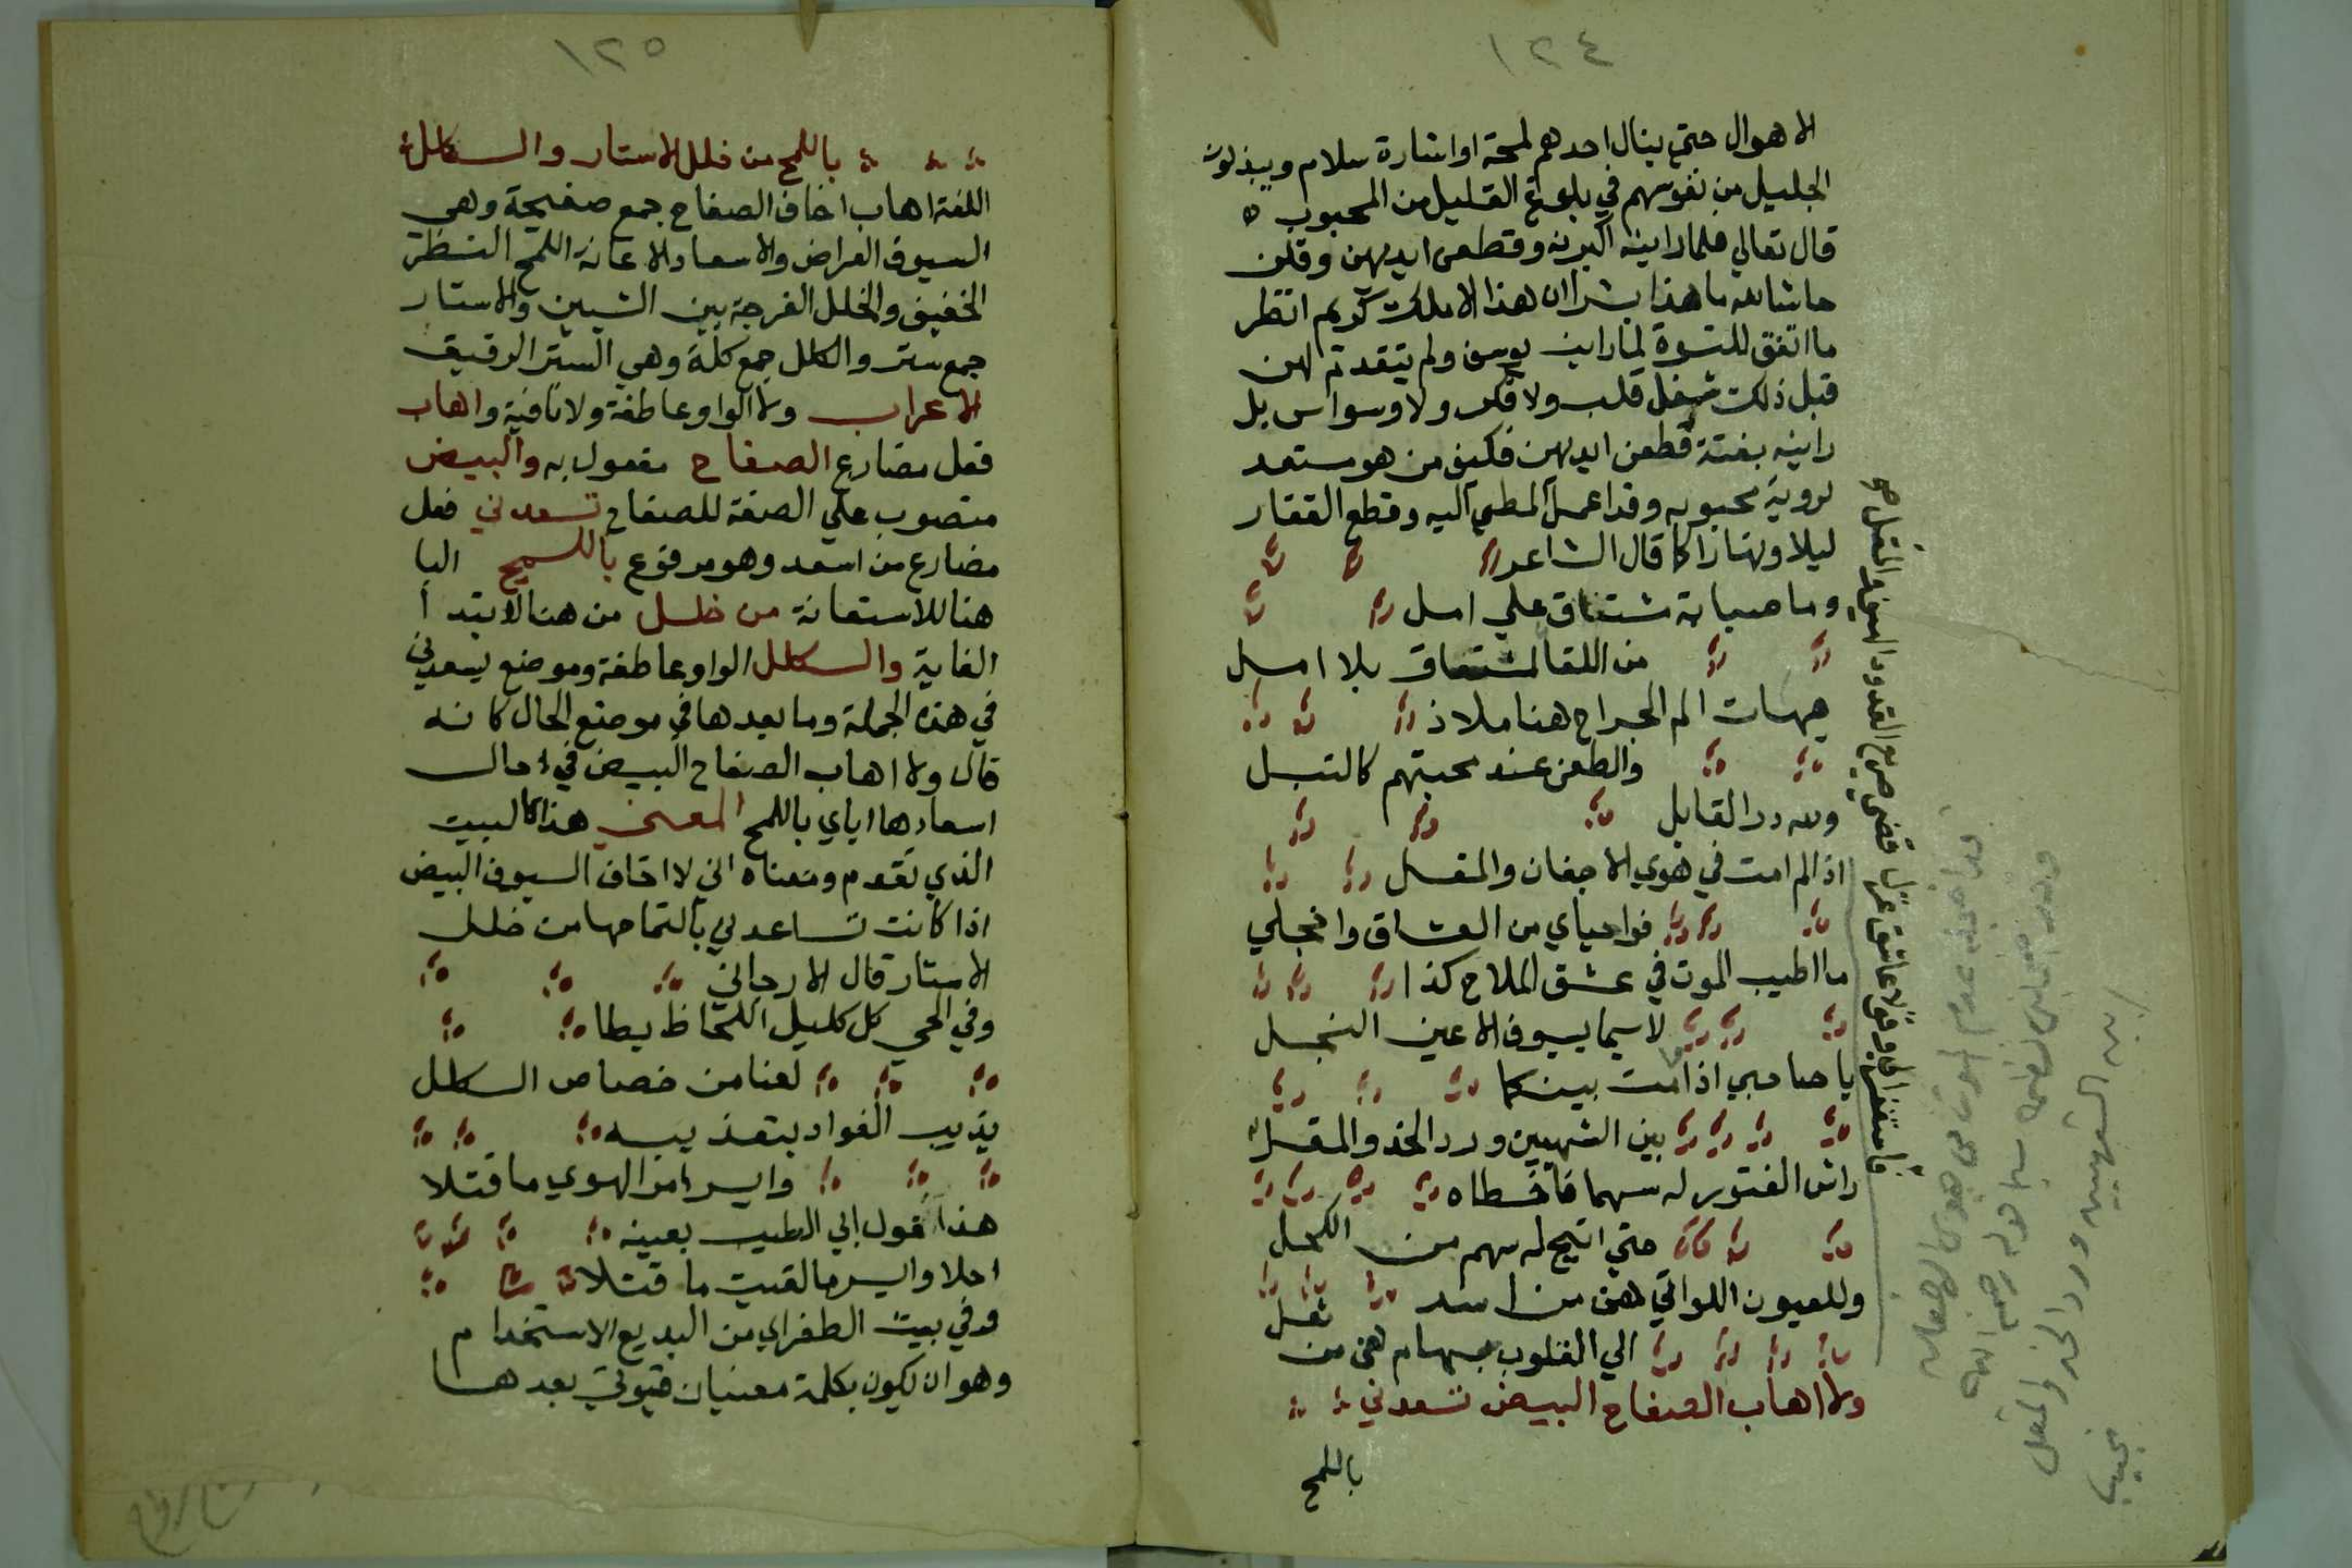 ١٢٤
الاهوال حتي ينال احدهم لمحة او اشارة سلام ويبذلون
الجليل من نفوسهم في بلوغ القليل من المحبوب ه
قال تعالي فلما راينه اكبرنه وقطعن ايديهن وقلن
حاشا لله ما هذا بشرا ان هذا الا ملك كريم انظر
ما اتفق للنسوة لما راين يوسف ولم يتقدم لهن
قبل ذلك شغل قلب ولا فكر ولا وسواس بل
راينه بغتة قطعن ايديهن فكيف من هو مستعد
لروية محبوبه وقد اعمل المطي اليه وقطع القفار
ليلا ونهارا كما قال الشاعر
وما صبابة مشتاق علي امل
من اللقا كمشتاق بلا امل
هيهات الم الجراح هنا ملاذ
والطعن عند محبتهم كالتبل
ولله در القايل
اذا لم امت في هوي الاجفان والمقل
فواحياي من العشاق واخجلي
ما اطيب الموت في عشق الملاح كذا
لاسيما بسيوف الاعين النجل
يا صاحبي اذا مت بينكما
بين الشهيين ورد الخد والمقل
راش الفتور له سهما فاخطاه
حتي اتيح له سهم من الكحل
وللعيون اللواتي هن من اسد
الي القلوب سهام هن من ثعل
ولا اهاب الصفاح البيض تسعدني
باللمح
فاستغفرا لي وقولا عاشق غزل قضي صريع القدود الهيف والمقل صح
الموت في هوي الاجفان
رحمه الله
بين الشهيين ورد الخد والمقل
١٢٥
باللمح من خلل الاستار والكلل
اللغة اهاب اخاف الصفاح جمع صفيحة وهي
السيوف العراض والاسعاد الاعانة اللمح النظر
الخفيف والخلل الفرجة بين الشيين والاستار
جمع ستر والكلل جمع كلة وهي الستر الرقيق
الاعراب ولا الواو عاطفة ولا نافية واهاب
فعل مضارع الصفاح مفعول به والبيض
منصوب علي الصفة للصفاح تسعدني فعل
مضارع من اسعد وهو مرفوع باللمح البا
هنا للاستعانة من خلل من هنا لابتدا
الغاية والكلل الواو عاطفة وموضع تسعدني
في هذه الجملة وما بعدها في موضع الحال كانه
قال ولا اهاب الصفاح البيض في حال
اسعادها اياي باللمح المعني هذا كالبيت
الذي تقدم ومعناه اني لا اخاف السيوف البيض
اذا كانت تساعدني بالتماحها من خلل
الاستار قال الارجاني
وفي الحي كل كليل اللحاظ
لعنا من خصاص الكلل
يذيب الفواد بتعذيبه
وايسر امر الهوي ما قتلا
هذا قول ابي الطيب بعينه
احلا وايسر ما لقيت ما قتلا
وفي بيت الطغراي من البديع الاستخدام
وهو ان يكون بكلمة معنيان فيوتي بعدها